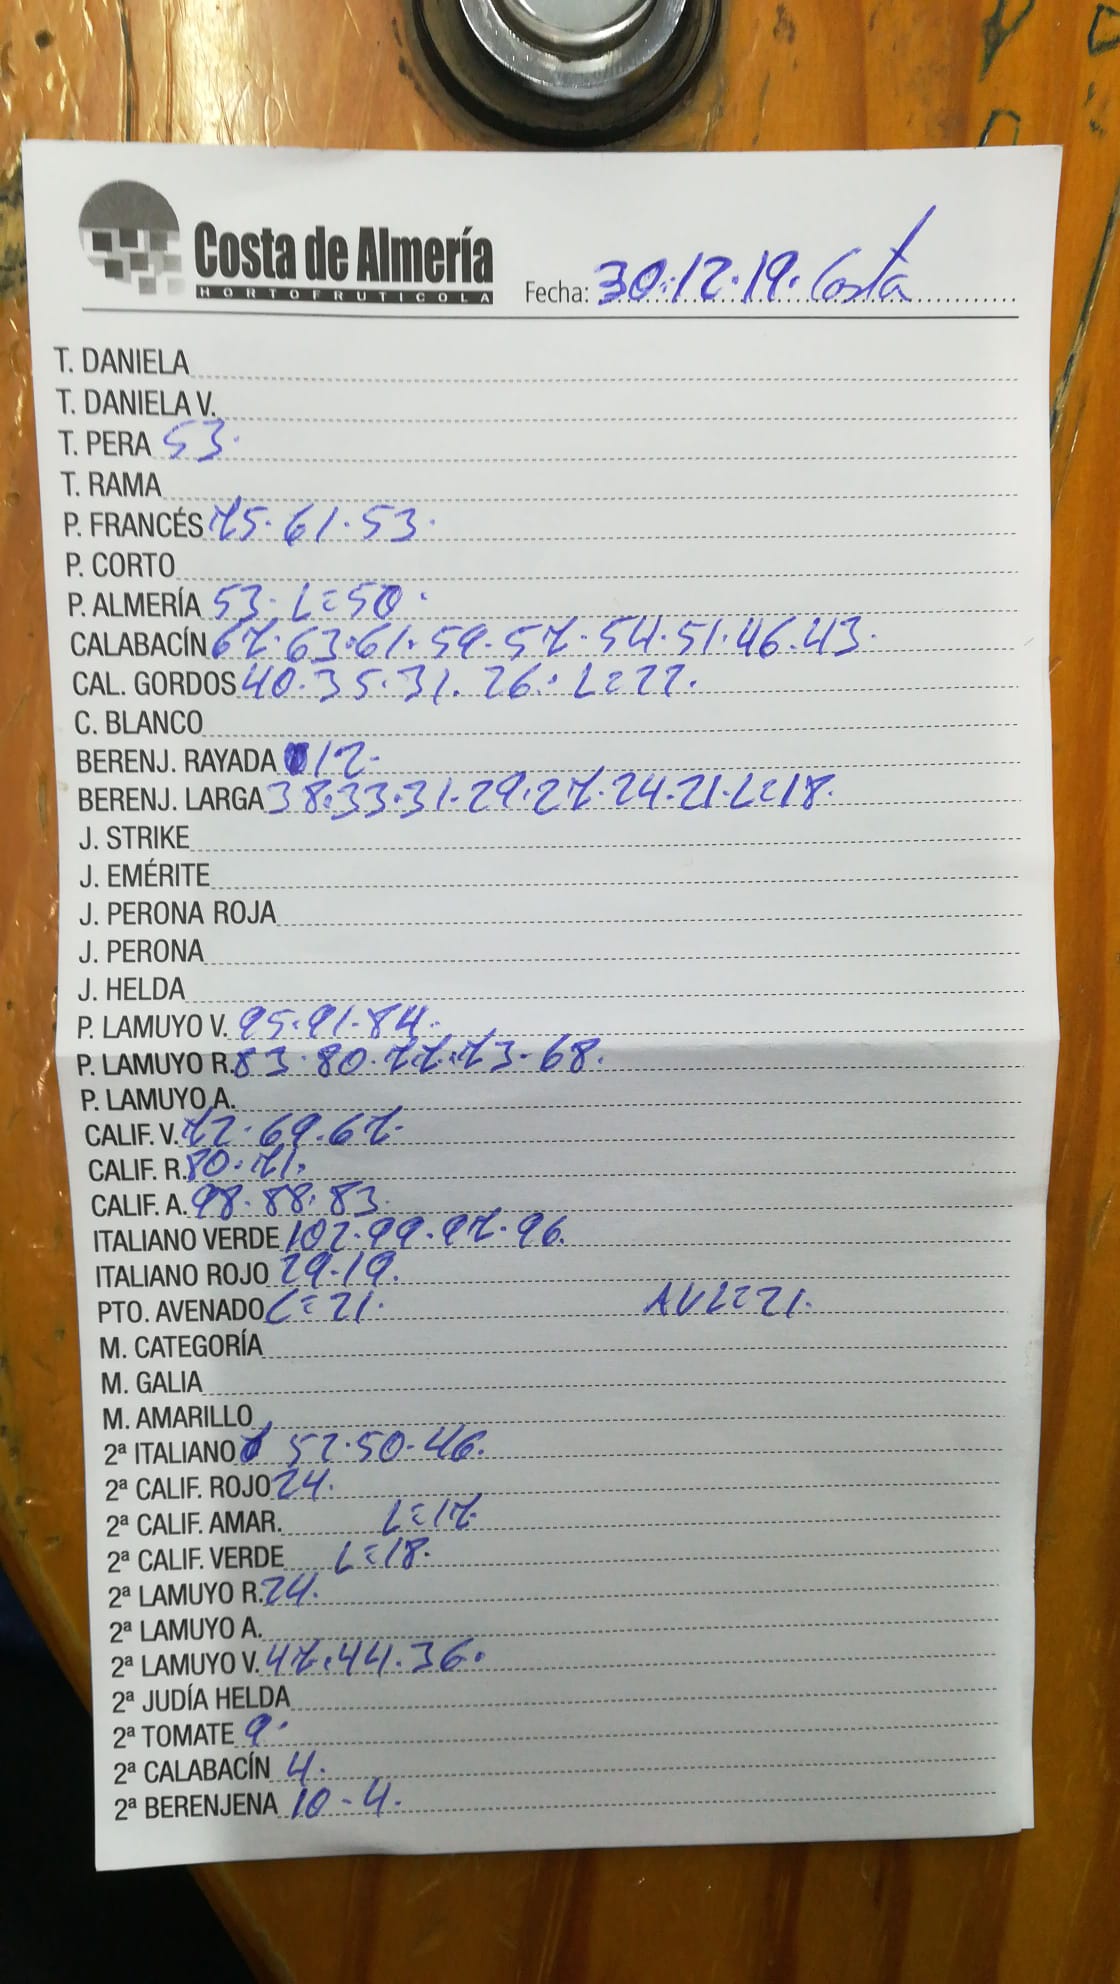 Costa de Almería
HORTOFRUTICOLA
Fecha: 30.12.19. Costa
T. DANIELA
T. DANIELA V.
T. PERA 53.
T. RAMA
P. FRANCÉS 75.61.53.
P. CORTO
P. ALMERÍA 53. L=50.
CALABACÍN 67.63.61.59.57.54.51.46.43.
CAL. GORDOS 40.35.31.26. L=22.
C. BLANCO
BERENJ. RAYADA 12.
BERENJ. LARGA 38.33.31.29.27.24.21.L=18.
J. STRIKE
J. EMÉRITE
J. PERONA ROJA
J. PERONA
J. HELDA
P. LAMUYO V. 95.91.84.
P. LAMUYO R. 83.80.77.73.68.
P. LAMUYO A.
CALIF. V. 72.69.67.
CALIF. R. 80.71.
CALIF. A. 98.88.83
ITALIANO VERDE 102.99.97.96.
ITALIANO ROJO 29.19.
PTO. AVENADO L=21. AV L=21.
M. CATEGORÍA
M. GALIA
M. AMARILLO
2ª ITALIANO 52.50.46.
2ª CALIF. ROJO 24.
2ª CALIF. AMAR. L=17
2ª CALIF. VERDE L=18.
2ª LAMUYO R. 24.
2ª LAMUYO A.
2ª LAMUYO V. 47.44.36.
2ª JUDÍA HELDA
2ª TOMATE 9.
2ª CALABACÍN 4.
2ª BERENJENA 10-4.